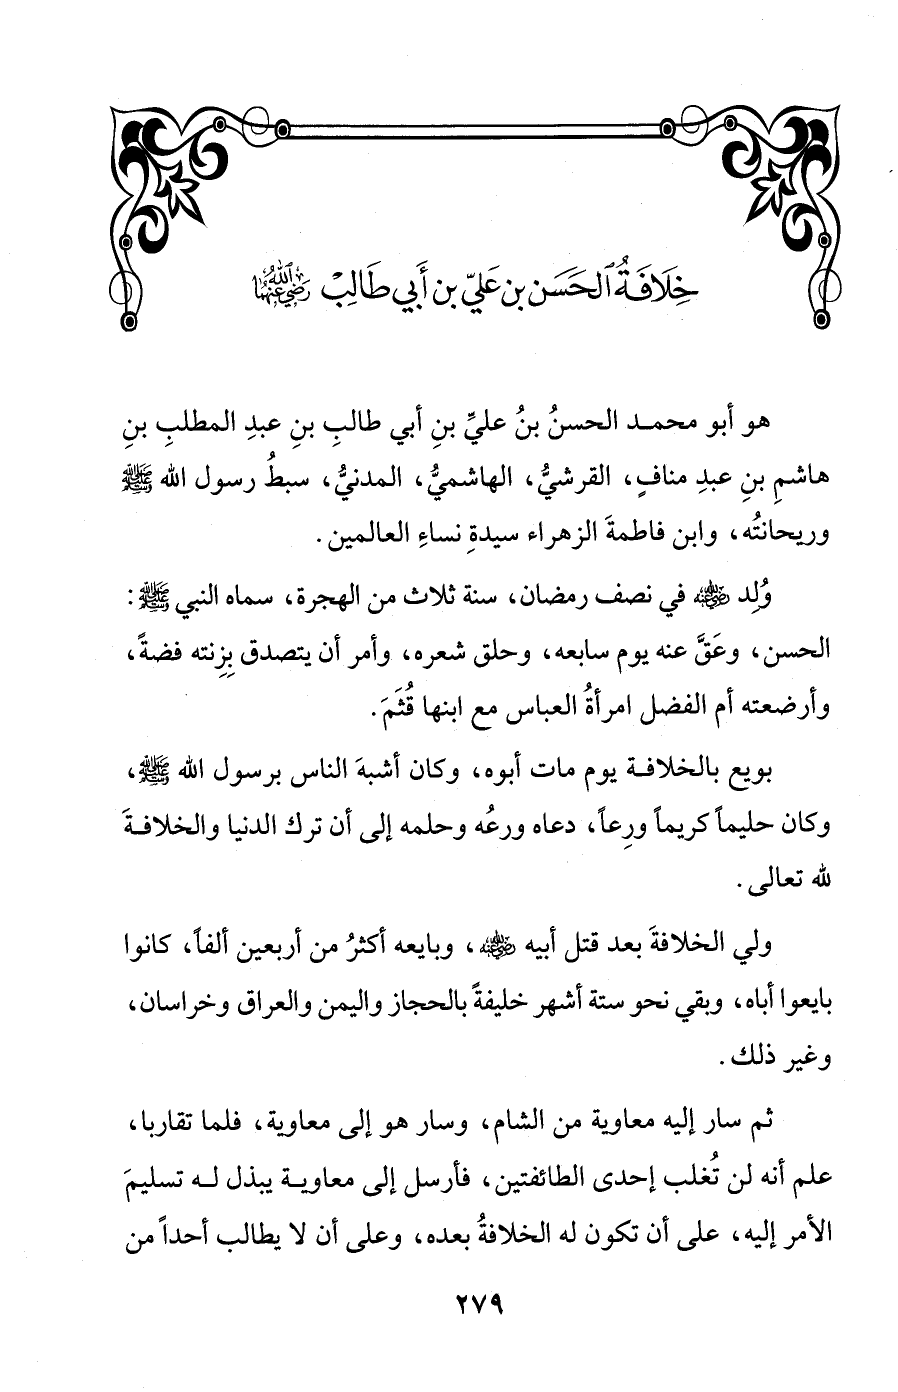 خِلَافَةُ الحَسَن بن عَليّ بن أَبي طَالِبْ رضي الله عنهما
هو أبو محمد الحسنُ بنُ عليِّ بنِ أبي طالبِ بنِ عبدِ المطلبِ بنِ
هاشمِ بنِ عبدِ منافٍ، القرشيُّ، الهاشميُّ، المدنيُّ، سبطُ رسول الله ﷺ
وريحانتُه، وابن فاطمةَ الزهراء سيدةِ نساءِ العالمين.
وُلِد رضي الله عنه في نصف رمضان، سنة ثلاث من الهجرة، سماه النبي ﷺ:
الحسن، وعَقَّ عنه يوم سابعه، وحلق شعره، وأمر أن يتصدق بِزِنته فضةً،
وأرضعته أم الفضل امرأةُ العباس مع ابنها قُثَمَ.
بويع بالخلافة يوم مات أبوه، وكان أشبهَ الناس برسول الله ﷺ،
وكان حليماً كريماً ورِعاً، دعاه ورعُه وحلمه إلى أن ترك الدنيا والخلافةَ
لله تعالى.
ولي الخلافةَ بعد قتل أبيه رضي الله عنه، وبايعه أكثرُ من أربعين ألفاً، كانوا
بايعوا أباه، وبقي نحو ستة أشهر خليفةً بالحجاز واليمن والعراق وخراسان،
وغير ذلك.
ثم سار إليه معاوية من الشام، وسار هو إلى معاوية، فلما تقاربا،
علم أنه لن تُغلب إحدى الطائفتين، فأرسل إلى معاوية يبذل له تسليمَ
الأمر إليه، على أن تكون له الخلافةُ بعده، وعلى أن لا يطالب أحداً من
٢٧٩